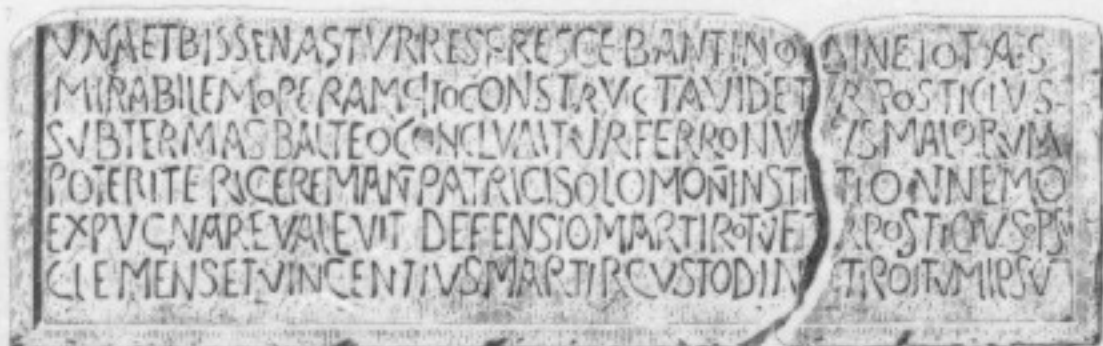 VNA ET BISSENAS TVRRES CRESCEBANT IN O DINE TOTAS
MIRABILEM OPERAM CITO CONSTRVCTA VIDET VR POSTICIVS
SVBTERMAS BALTEO CONCLVDITVR FERRO NVL VS MALORVM
POTERIT ERIGERE MAN PATRICI SOLOMON INSTI TION NEMO
EXPVGNARE VALEVIT DEFENSIO MARTIR TVET VR POSTICIVS IPS
CLEMENS ET VINCENTIVS MARTIR CVSTOD IN TROITVM IPSV